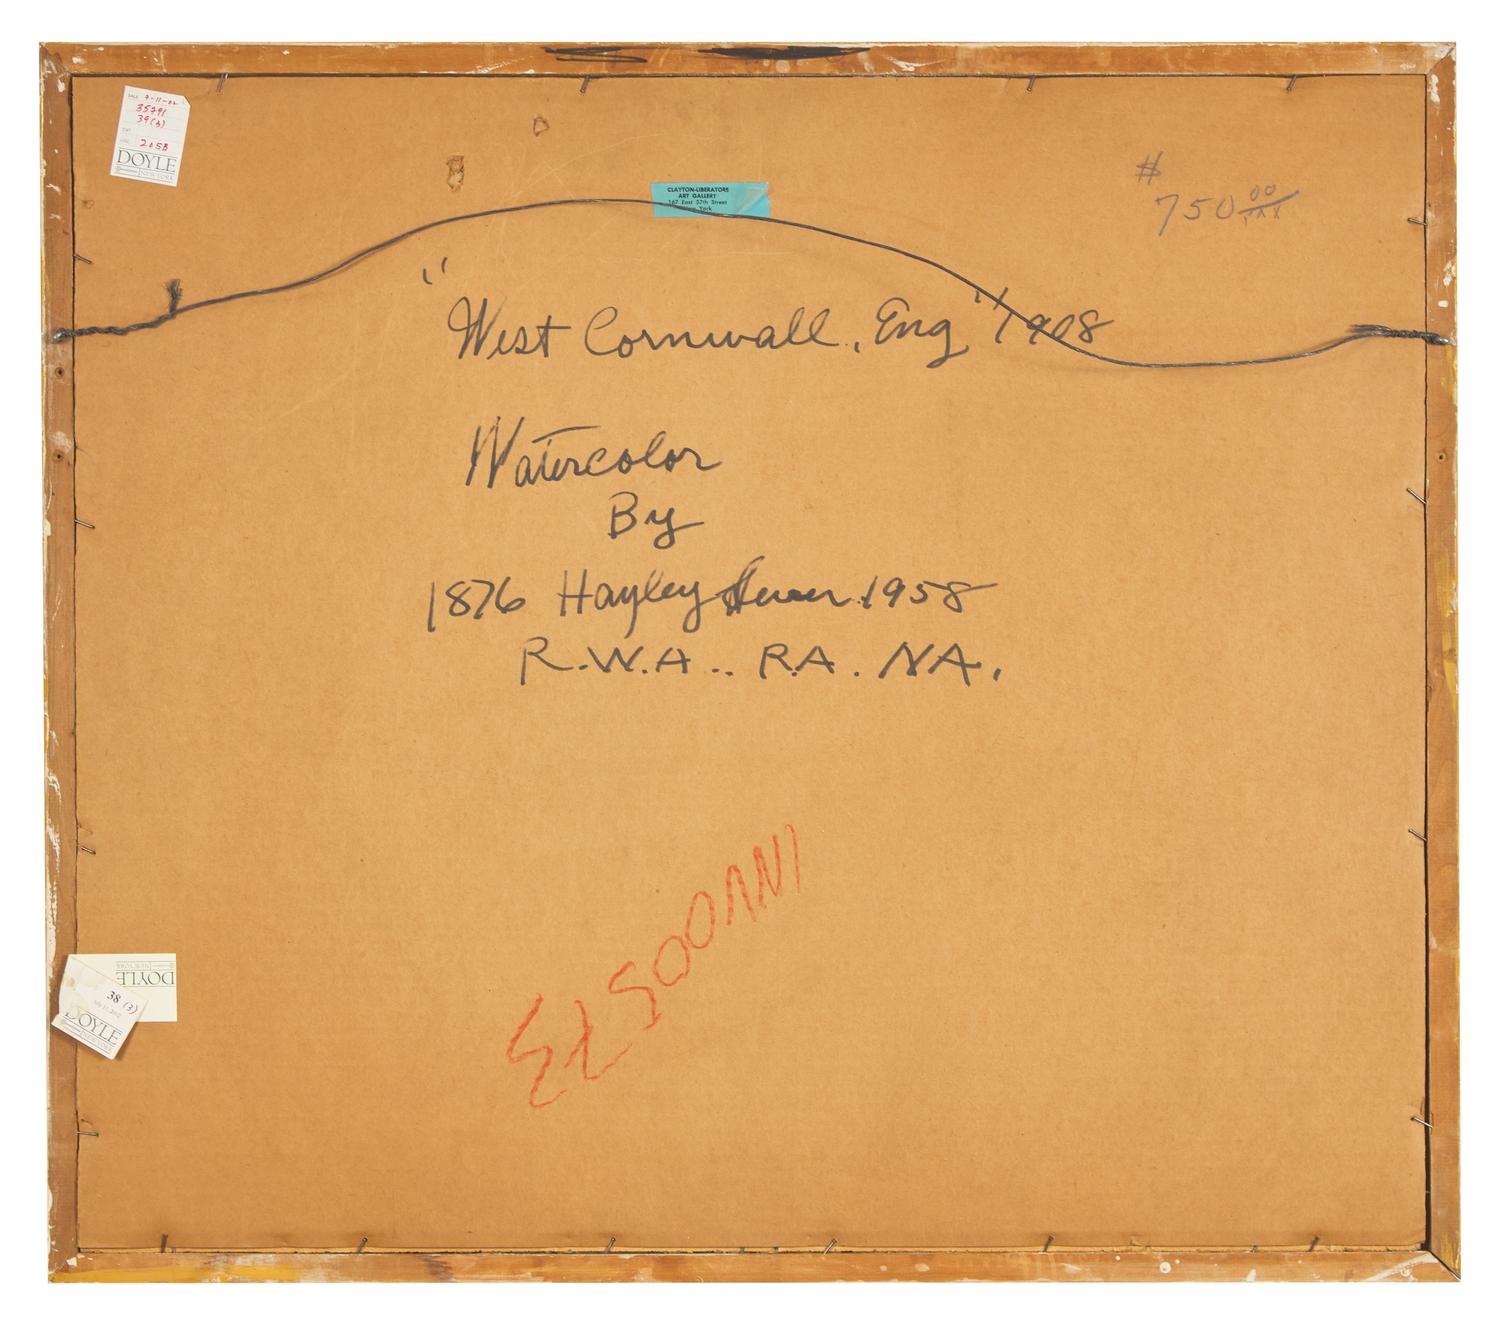 SALE 9-11-02
35791
39(3)
205B
DOYLE
NEW YORK
CLAYTON-LIBERATORE
ART GALLERY
167 East 57th Street
New York
# 750 00
TAX
"West Cornwall, Eng" 1908
Watercolor
By
1876 Hayley Lever 1958
R.W.A.. R.A. NA.
DOYLE
NEW YORK
38 (3)
DOYLE
NEW YORK